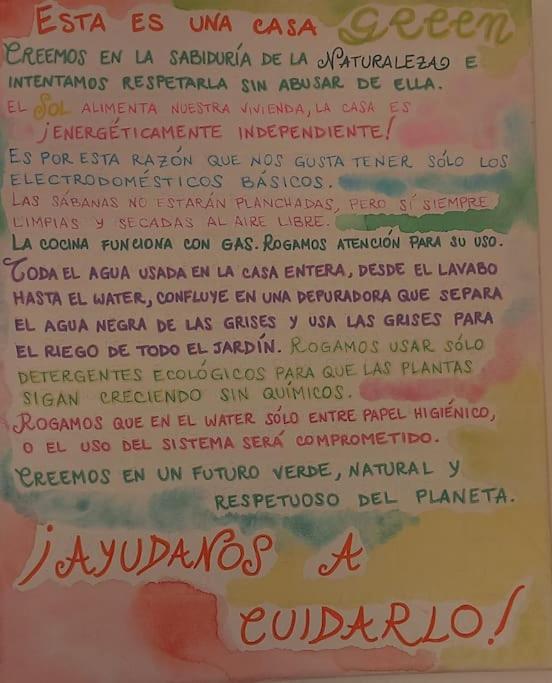 ESTA ES UNA CASA GREEN
CREEMOS EN LA SABIDURÍA DE LA NATURALEZA E
INTENTAMOS RESPETARLA SIN ABUSAR DE ELLA.
EL SOL ALIMENTA NUESTRA VIVIENDA, LA CASA ES
¡ENERGÉTICAMENTE INDEPENDIENTE!
ES POR ESTA RAZÓN QUE NOS GUSTA TENER SÓLO LOS
ELECTRODOMÉSTICOS BÁSICOS.
LAS SÁBANAS NO ESTARÁN PLANCHADAS, PERO SÍ SIEMPRE
LIMPIAS Y SECADAS AL AIRE LIBRE.
LA COCINA FUNCIONA CON GAS. ROGAMOS ATENCIÓN PARA SU USO.
TODA EL AGUA USADA EN LA CASA ENTERA, DESDE EL LAVABO
HASTA EL WATER, CONFLUYE EN UNA DEPURADORA QUE SEPARA
EL AGUA NEGRA DE LAS GRISES Y USA LAS GRISES PARA
EL RIEGO DE TODO EL JARDÍN. ROGAMOS USAR SÓLO
DETERGENTES ECOLÓGICOS PARA QUE LAS PLANTAS
SIGAN CRECIENDO SIN QUÍMICOS.
ROGAMOS QUE EN EL WATER SÓLO ENTRE PAPEL HIGIÉNICO,
O EL USO DEL SISTEMA SERÁ COMPROMETIDO.
CREEMOS EN UN FUTURO VERDE, NATURAL Y
RESPETUOSO DEL PLANETA.
¡AYUDANOS A
CUIDARLO!